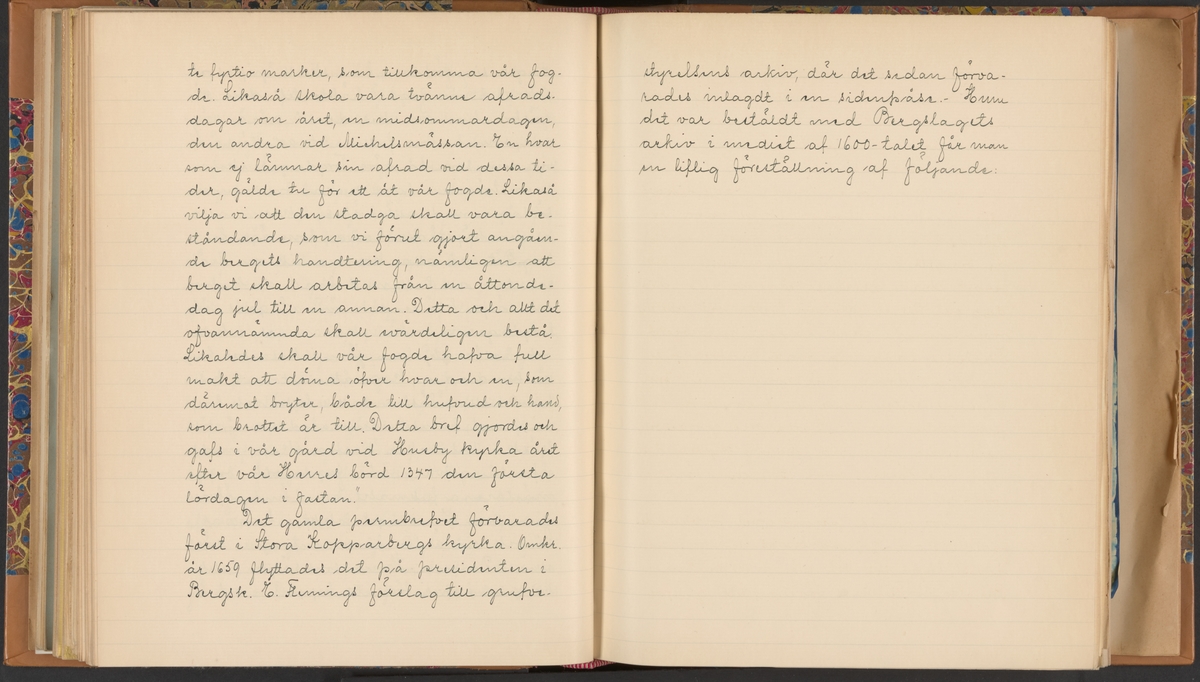 te fyrtio marker, som tillkomma vår fog-
de. Likaså skola vara tvänne afrads-
dagar om året, en midsommardagen,
den andra vid Michelsmässan. En hvar
som ej lämnar sin afrad vid dessa ti-
der, gälde tu för ett åt vår fogde. Likaså
vilja vi att den stadga skall vara be-
ståndande, som vi förut gjort angåen-
de bergets handtering, nämligen att
berget skall arbetas från en åttonde-
dag jul till en annan. Detta och allt det
ofvannämnda skall evärdeligen bestå.
Likaledes skall vår fogde hafva full
makt att döma öfver hvar och en, som
däremot bryter, både till hufvud och hand,
som brottet är till. Detta bref gjordes och
gafs i vår gård vid Husby kyrka året
efter vår Herres börd 1347 den första
lördagen i fastan."
Det gamla permbrefvet förvarades
först i Stora Kopparbergs kyrka. Omkr.
år 1659 flyttades det på presidenten i
Bergsk. E. Flemings förslag till grufve-
styrelsens arkiv, där det sedan förva-
rades inlagdt i en sidenpåse.- Huru
det var bestäldt med Bergslagets
arkiv i mediet af 1600-talet får man
en liflig föreställning af följande: